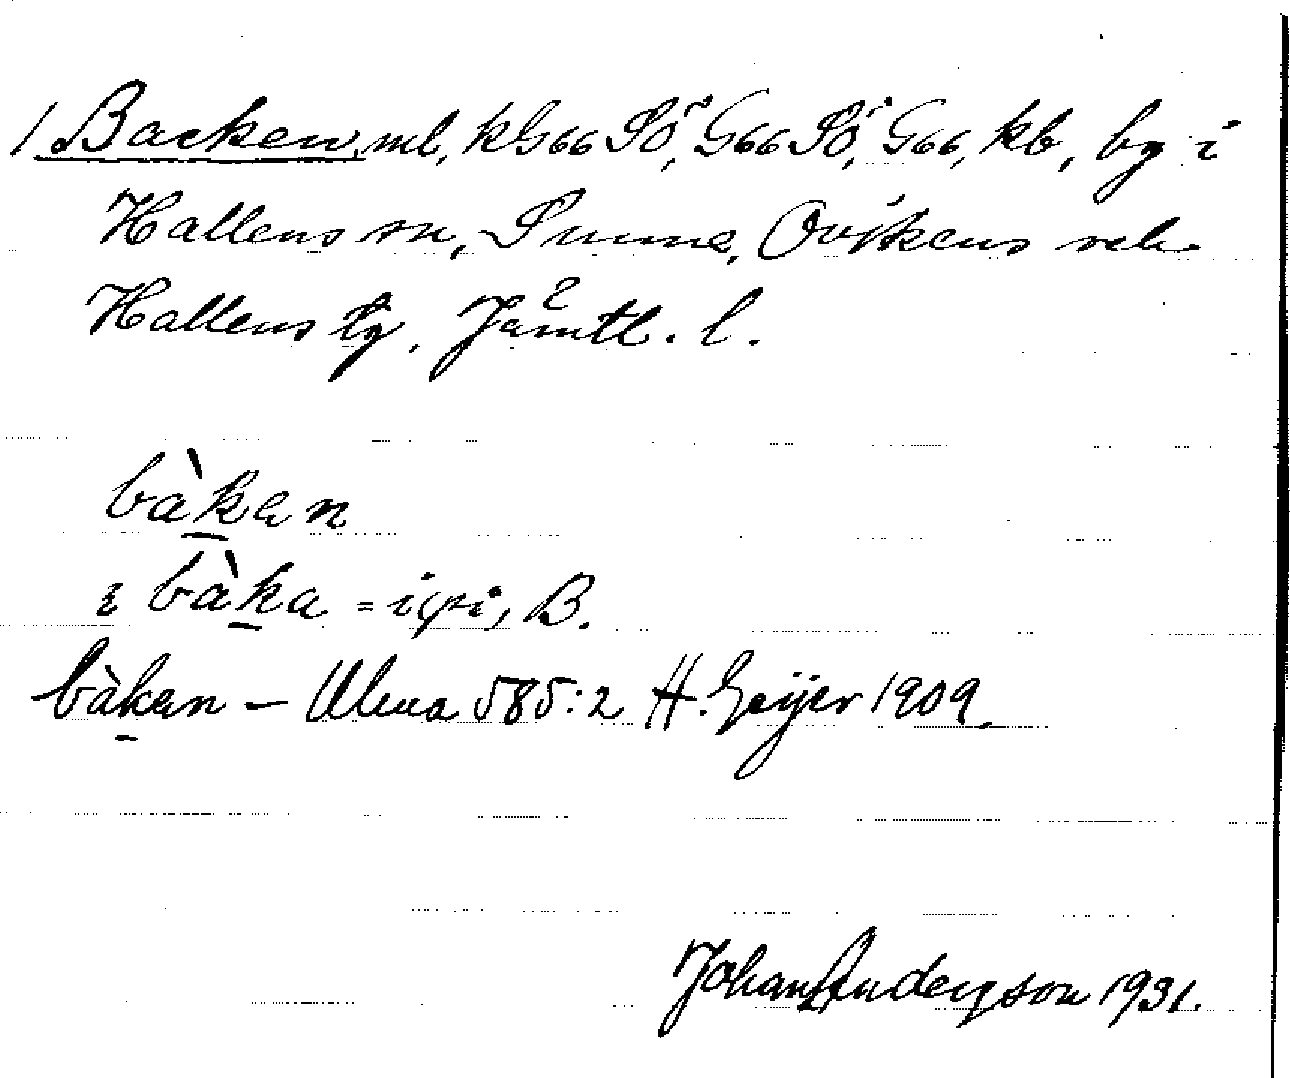 1 Backen, ml, kG66 SÖ, G66 SÖ, G66, kb, by i
Hallens sn, Sunne, Ovikens och
Hallens tg, Jämtl. l.
bàkan
ɩ bàka = i(på), B.
bàkan – Ulma 585:2 H. Geijer 1909.
Johan Anderzson 1931.